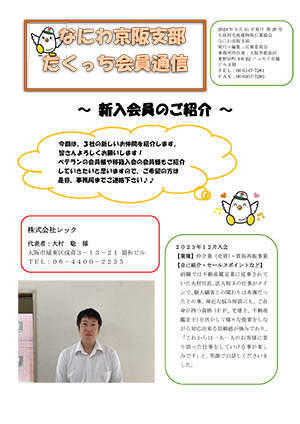 なにわ京阪支部
たくっち会員通信
2024年3月31日発行 第20号
大阪府宅地建物取引業協会
なにわ京阪支部
発行・編集:広報委員会
TEL:06-6147-7281
FAX:06-6357-7285
～ 新入会員のご紹介 ～
今回は、3社の新しいお仲間を紹介します。
皆さんよろしくお願いします!
ベテランの会員様や移籍入会の会員様もご紹介
していきたいと思いますので、ご希望の方は
是非、事務局までご連絡下さい♪♪
株式会社レック
代表者:大村 聡 様
大阪市城東区成育3-13-21 協和ビル
TEL:06-4400-2235
2023年12月入会
【業種】仲介業(売買)・買取再販事業
【自己紹介・セールスポイントなど】
前職では不動産鑑定業に従事されて
いた大村社長。法人相手の仕事がメイ
ンで、個人顧客との関わりは希薄だっ
たとの事。身近な悩み相談にも、ご自
身が持つ資格(FP、宅建士、不動産
鑑定士)を活かして様々な提案をしな
がら対応出来る信頼感が強みであり、
「これからは一人一人のお客様に寄
り添った仕事をしていける事が楽し
みです」と、笑顔でお話しくださいま
した。